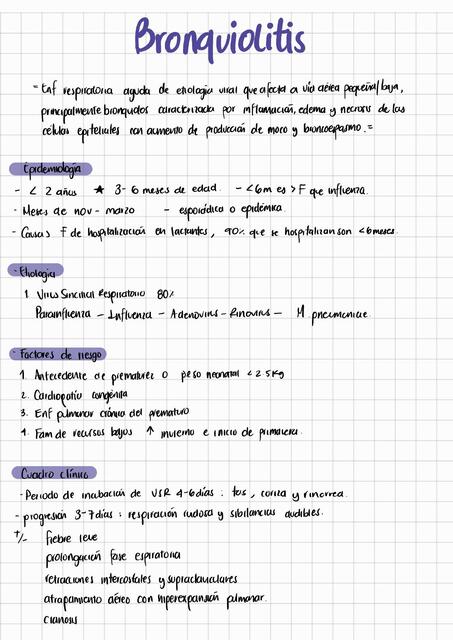 Bronquiolitis
= Enf respiratoria aguda de etiologia viral que afecta a vía aérea pequeña/baja,
principalmente bronquiolos caracterizada por inflamación, edema y necrosis de las
células epiteliales con aumento de producción de moco y broncoespasmo. =
Epidemiología
- < 2 años ★ 3-6 meses de edad. - <6m es >F que influenza.
- Meses de nov - marzo - esporádica o epidémica.
- Causas F de hospitalización en lactantes, 90% que se hospitalizan son <6meses.
· Etiologia
1. Virus Sincitial Respiratorio 80%
Parainfluenza - Influenza - Adenovirus - Rinovirus - M. pneumoniae.
· Factores de riesgo
1. Antecedente de prematurez o peso neonatal < 2.5Kg
2. Cardiopatía congénita
3. Enf pulmonar crónica del prematuro
4. Fam de recursos bajos ↑ invierno e inicio de primavera.
Cuadro clínico
- Periodo de incubación de VSR 4-6 días : tos, coriza y rinorrea.
- progresión 3-7 días : respiración rudosa y sibilancias audibles.
+/- fiebre leve
prolongación fase espiratoria
retracciones intercostales y supraclaviculares
atrapamiento aéreo con hiperexpansión pulmonar.
cianosis